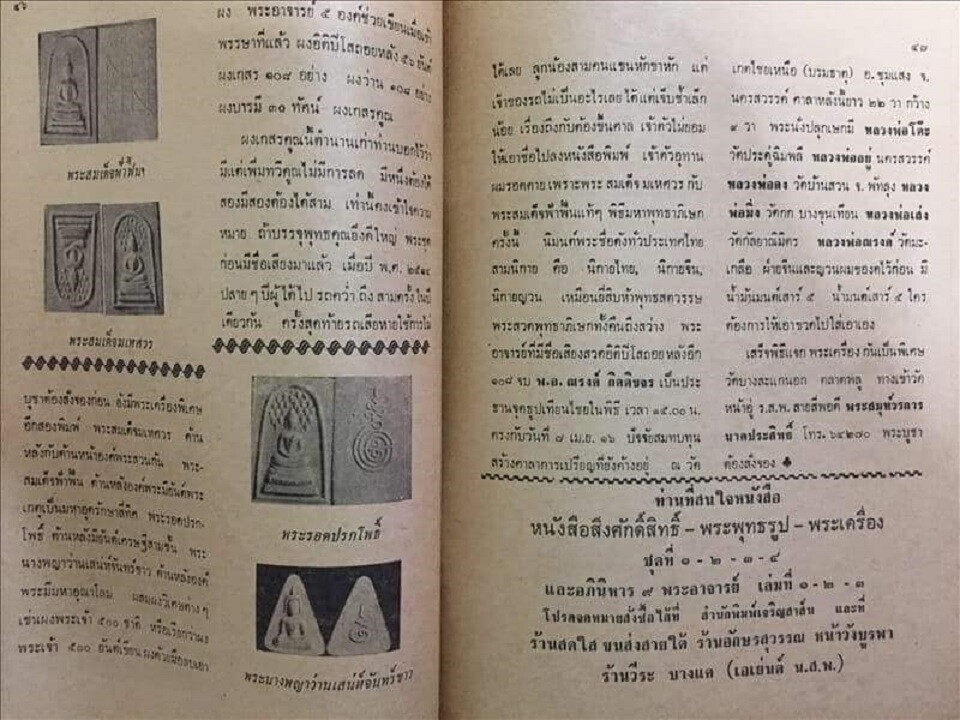 ๔๖
ผง พระอาจารย์ ๕ องค์ช่วยเขียนเมื่อเข้า
พรรษาที่แล้ว ผงอิติปิโสถอยหลัง ๕๖ อันดี
ผงเกสร ๑๐๘ อย่าง ผงว่าน ๑๐๘ อย่าง
ผงบารมี ๓๐ ทัศน์ ผงเกสรคูณ
ผงเกสรคูณนี้ตำนานเก่าท่านบอกไว้ว่า
มีแต่เพิ่มทวีคูณไม่มีการลด มีหนึ่งต้องได้
สองมีสองต้องได้สาม เท่านี้คงเข้าใจความ
หมาย ถ้าบรรจุพุทธคุณยิ่งดีใหญ่ พระชุด
ก่อนมีชื่อเสียงมาแล้ว เมื่อปี พ.ศ. ๒๕๑๔
ปลาย ๆ ปีผู้ได้ไป รถคว่ำ ถึง สามครั้งในปี
เดียวกัน ครั้งสุดท้ายรถเสียหายใช้การไม่
พระสมเด็จฟ้าฟื้นฯ
พระสมเด็จมเหศวร
บูชาต้องสั่งจองก่อน ยังมีพระเครื่องพิเศษ
อีกสองพิมพ์ พระสมเด็จมเหศวร ด้าน
หลังกับด้านหน้าองค์พระสวนกัน พระ-
สมเด็จฟ้าฟื้น ด้านหลังองค์พระมียันต์พระ
เกตุเป็นมหาอุตรักษาสี่ทิศ พระรอดปรก-
โพธิ์ ด้านหลังมียันต์เศรษฐีสามชั้น พระ
นางพญาว่านเสน่ห์จันทร์ขาว ด้านหลังองค์
พระมีมหาอุณาโลม ผสมผงวิเศษต่าง ๆ
เช่นผงพระเจ้า ๕๐๐ ชาติ หรือเรียกว่าผง
พระเจ้า ๕๐๐ ยันต์เขียนผงด้วยมือลบเอา
พระรอดปรกโพธิ์
พระนางพญาว่านเสน่ห์จันทร์ขาว
๔๗
ได้เลย ลูกน้องสามคนแขนหักขาหัก แต่
เจ้าของรถไม่เป็นอะไรเลย ได้แต่เจ็บช้ำเล็ก
น้อย เรื่องถึงกับต้องขึ้นศาล เจ้าตัวไม่ยอม
ให้เอาชื่อไปลงหนังสือพิมพ์ เจ้าตัวอุทาน
ผมรอดตายเพราะพระ สมเด็จ มเหศวร กับ
พระสมเด็จฟ้าฟื้นแท้ๆ พิธีมหาพุทธาภิเษก
ครั้งนี้ นิมนต์พระชื่อดังทั่วประเทศไทย
สามนิกาย คือ นิกายไทย, นิกายจีน,
นิกายญวน เหมือนยี่สิบห้าพุทธสตวรรษ
พระสวดพุทธาภิเษกทั้งคืนถึงสว่าง พระ
อาจารย์ที่มีชื่อเสียงสวดอิติปิโสถอยหลังอีก
๑๐๘ จบ พ.อ. ณรงค์ กิตติขจร เป็นประ
ธานจุดธูปเทียนไชยในพิธี เวลา ๑๕.๐๐ น.
ตรงกับวันที่ ๗ เม.ย. ๑๖ ปัจจัยสมทบทุน
สร้างศาลาการเปรียญที่ยังค้างอยู่ ณ วัด
เกตไชยเหนือ (บรมธาตุ) อ. ชุมแสง จ.
นครสวรรค์ ศาลาหลังนี้ยาว ๒๒ วา กว้าง
๙ วา พระนั่งปลุกเษกมี หลวงพ่อโต๊ะ
วัดประดู่ฉิมพลี หลวงพ่ออยู่ นครสวรรค์
หลวงพ่อคง วัดบ้านสวน จ. พัทลุง หลวง
พ่อมิ่ง วัดกก บางขุนเทียน หลวงพ่อเส่ง
วัดกัลยาณมิตร หลวงพ่อณรงค์ วัดมะ-
เกลือ ฝ่ายจีนและญวนผมขอไว้ก่อน มี
น้ำมันมนต์เสาร์ ๕ น้ำมนต์เสาร์ ๕ ใคร
ต้องการให้เอาขวดไปใส่เอาเอง
เสร็จพิธีแจก พระเครื่อง กันเป็นพิเศษ
วัดบางสะแกนอก ตลาดพลู ทางเข้าวัด
หน้าอู่ ร.ส.พ. สายสี่พอดี พระสมุห์วรการ
นาคประสิทธิ์ โทร. ๖๔๒๗๐ พระบูชา
ต้องสั่งจอง ♣
ท่านที่สนใจหนังสือ
หนังสือสิ่งศักดิ์สิทธิ์ – พระพุทธรูป – พระเครื่อง
ชุดที่ ๑ - ๒ - ๓ - ๔
และอภินิหาร ๙ พระอาจารย์ เล่มที่ ๑ - ๒ - ๓
โปรดจดหมายสั่งซื้อได้ที่ สำนักพิมพ์เจริญสาส์น และที่
ร้านสดใส ขนส่งสายใต้ ร้านอักษรสุวรรณ หน้าวังบูรพา
ร้านวีระ บางแค (เอเย่นต์ น.ส.พ.)